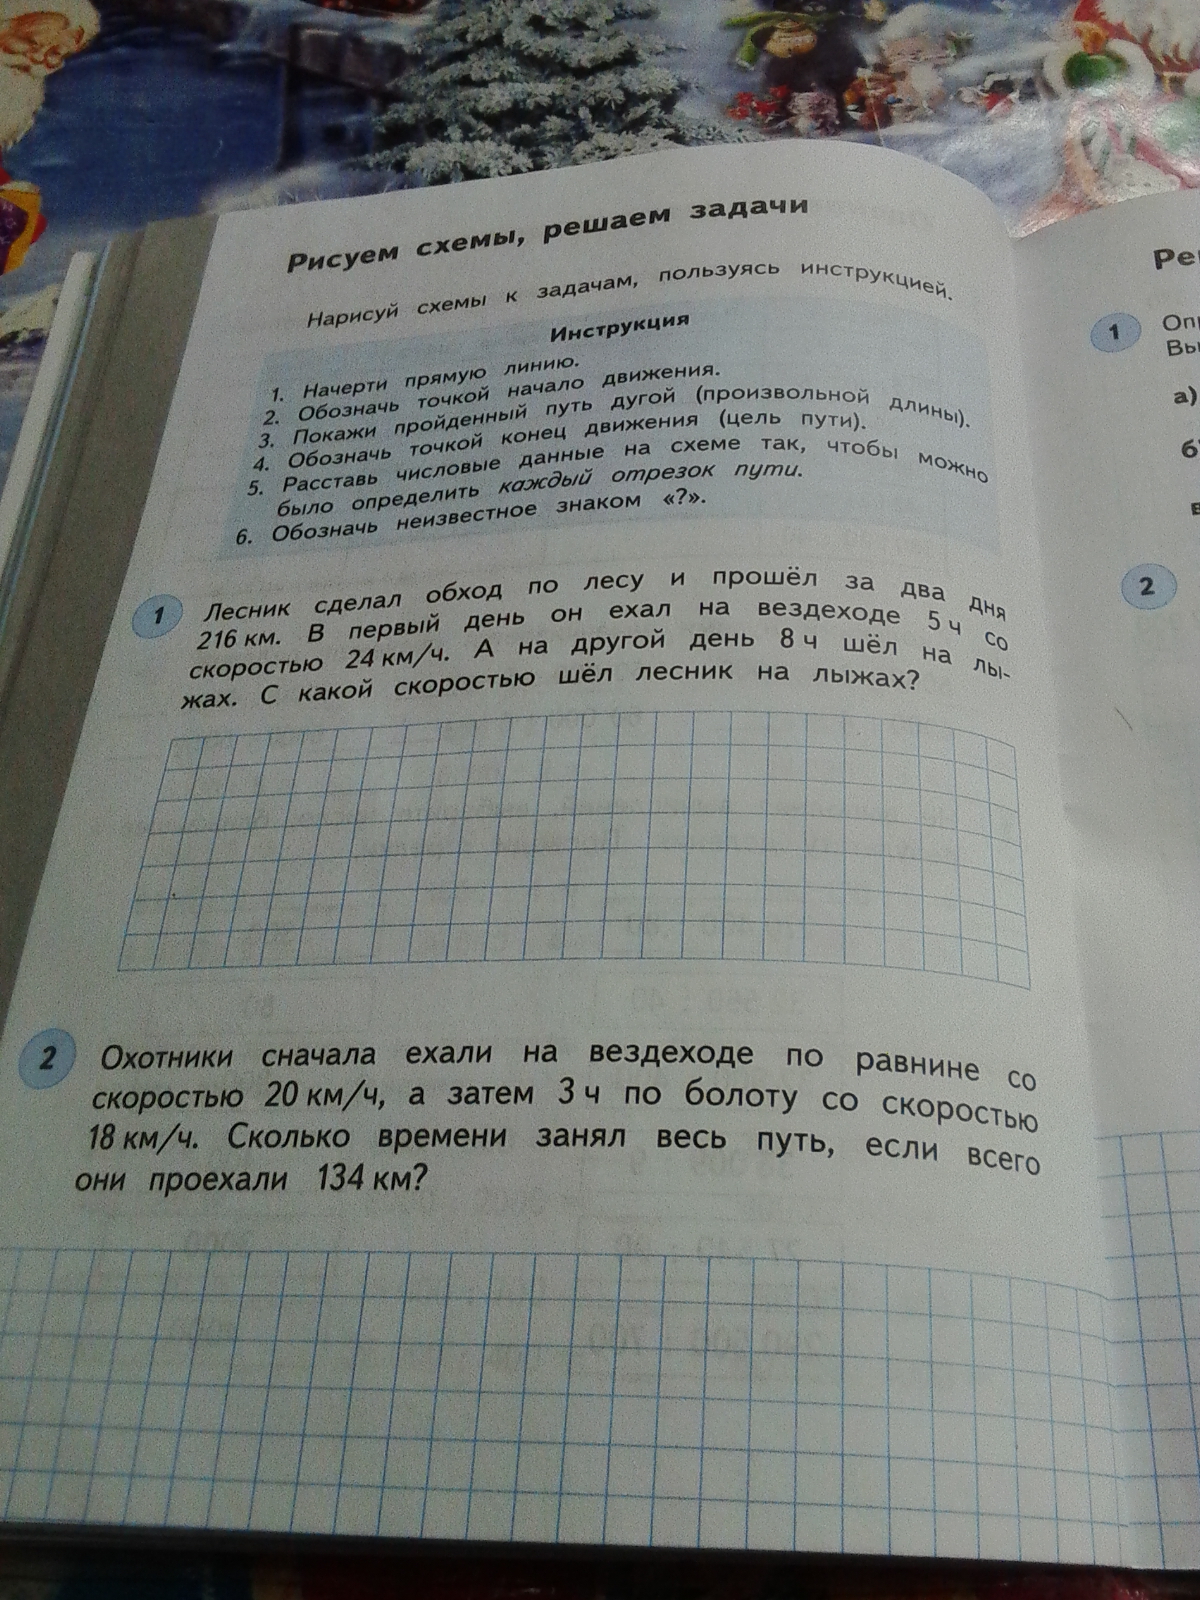 Рисуем схемы, решаем задачи
Нарисуй схемы к задачам, пользуясь инструкцией.
Инструкция
1. Начерти прямую линию.
2. Обозначь точкой начало движения.
3. Покажи пройденный путь дугой (произвольной длины).
4. Обозначь точкой конец движения (цель пути).
5. Расставь числовые данные на схеме так, чтобы можно
было определить каждый отрезок пути.
6. Обозначь неизвестное знаком «?».
1 Лесник сделал обход по лесу и прошёл за два дня
216 км. В первый день он ехал на вездеходе 5 ч со
скоростью 24 км/ч. А на другой день 8 ч шёл на лы-
жах. С какой скоростью шёл лесник на лыжах?
2 Охотники сначала ехали на вездеходе по равнине со
скоростью 20 км/ч, а затем 3 ч по болоту со скоростью
18 км/ч. Сколько времени занял весь путь, если всего
они проехали 134 км?
1
а)
2